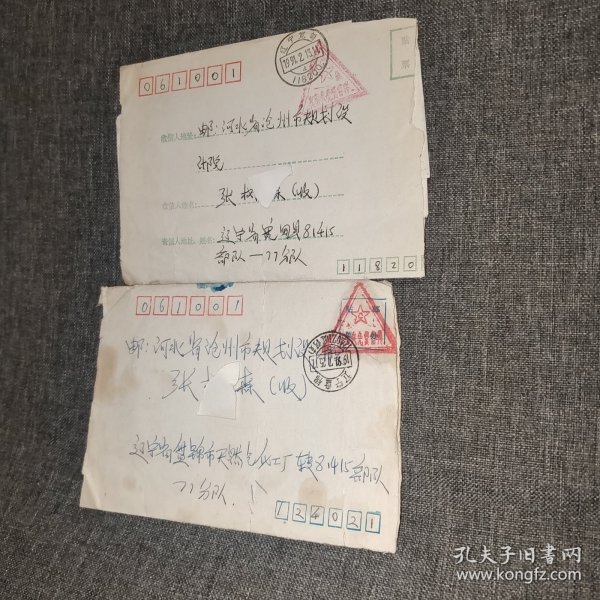 061001
贴
票
收信人地址: 邮:河北省沧州市规划设
计院
收信人姓名: 张
(收)
寄信人地址、姓名: 辽宁省宽甸县81415
部队一77分队
11820
061001
邮:河北省沧州市规划设
张
森(收)
辽宁省盘锦市天然气化工厂转81415部队
77分队
124021
辽宁盘锦
孔夫子旧书网
www.kongfz.com